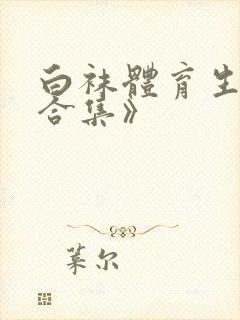 白袜體育生
合集》
莱尔